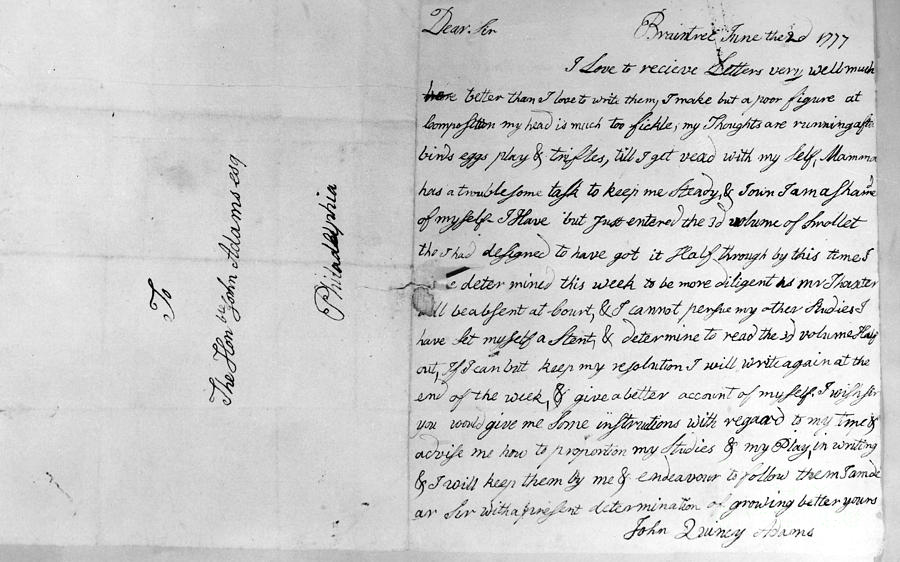 To
The Hon ble John Adams esq
Philadelphia
Dear Sir
Braintree June the 2d 1777
I Love to recieve Letters very well much
better than I love to write them, I make but a poor figure at
Composition my head is much too fickle, my Thoughts are running after
birds eggs play & trifles, till I get vexd with my self, Mamma
has a troublesome task to keep me Steady, & I own I am ashamed
of myself. I Have but Just entered the 3d volume of Smollet
tho I had designed to have got it Half through by this time I
determined this week to be more diligent as mr Thaxter
will be absent at Court, & I cannot persue my other Studies I
have Set myself a Stent, & determine to read the 3d volume Half
out, If I can but keep my resolution I will write again at the
end of the week, & give a better account of myself. I wish Sir
you would give me Some instructions with regard to my time &
advise me how to proportion my Studies & my Play, in writing
& I will keep them by me & endeavour to follow them I am de
ar Sir with a present determination of growing better yours
John Quincy Adams